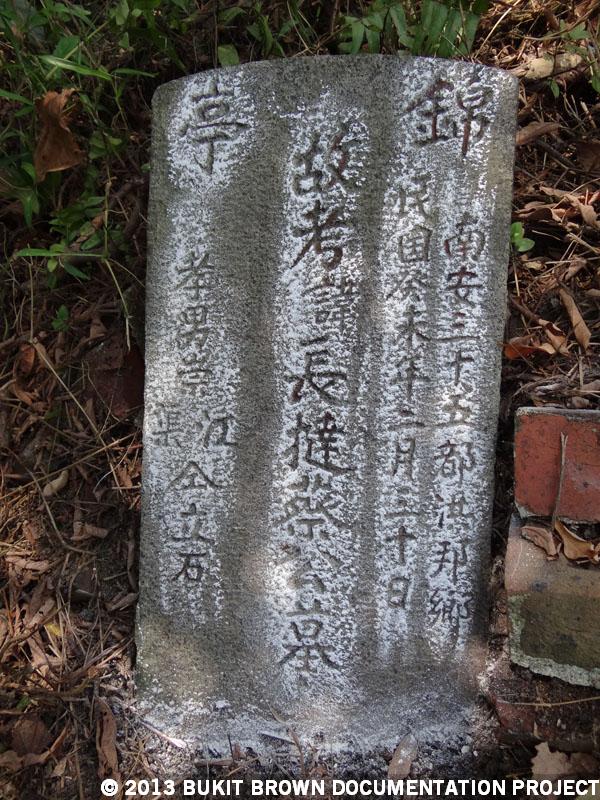 錦亭
南安三十五都洪邦鄉
民国癸未年二月三十日
故考諱長㨗蔡公墓
孝男京江
仝立石
© 2013 BUKIT BROWN DOCUMENTATION PROJECT